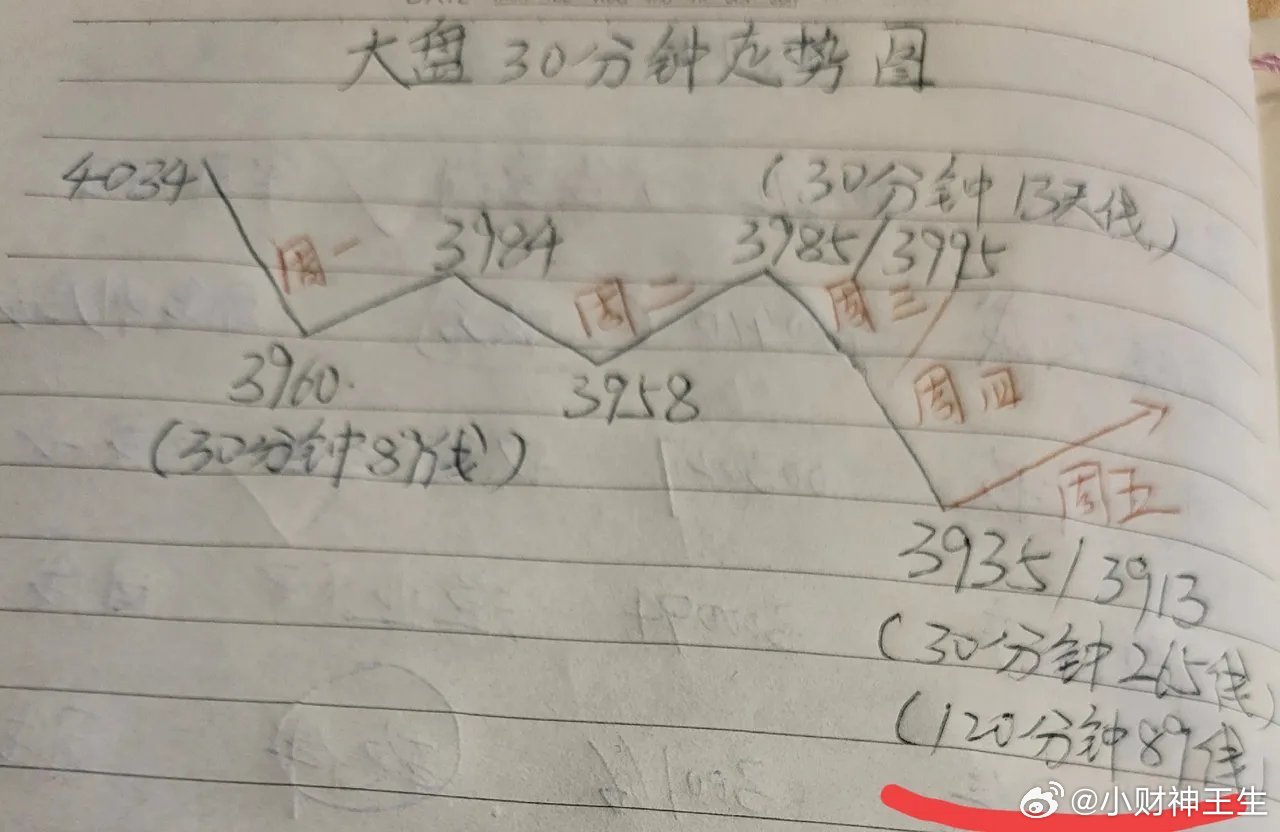 大盘30分钟走势图
4034
(30分钟13天线)
周一
3984
3985/3995
周二
周三
3960
3958
周四
(30分钟89线)
周五
3935/3913
(30分钟265线)
(120分钟89线
@小财神王生